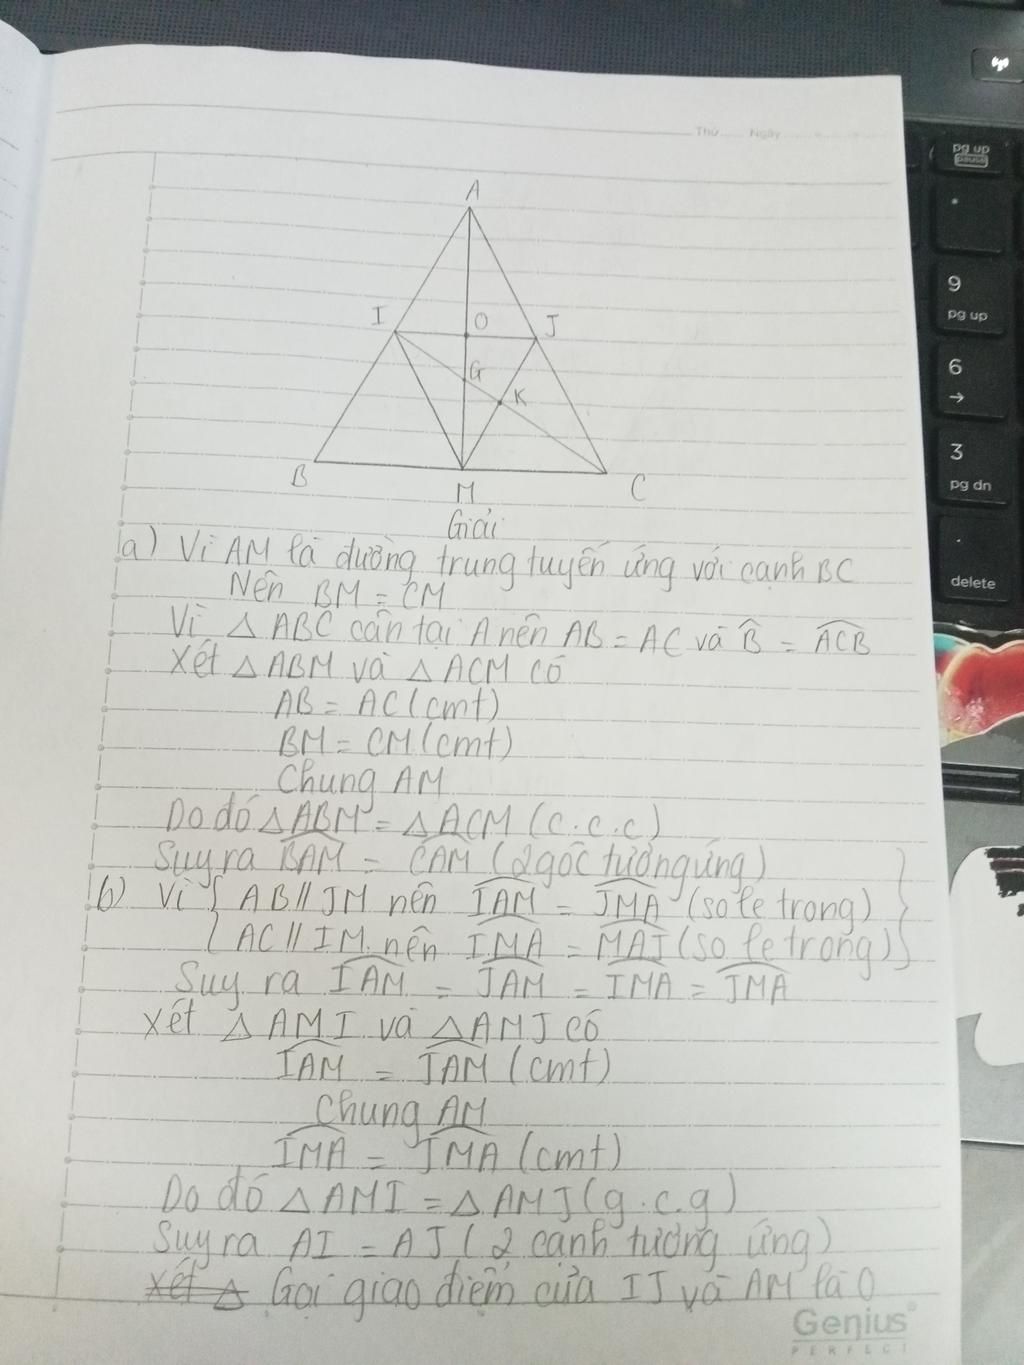 Thứ...... Ngày
pg up
pause
A
9
pg up
I
O
J
G
6
→
K
3
pg dn
B
M
C
.
delete
Giải
a) Vì AM là đường trung tuyến ứng với cạnh BC
Nên BM = CM
Vì △ ABC cân tại A nên AB = AC và B̂ = \widehat{ACB}
Xét △ ABM và △ ACM có
AB = AC (cmt)
BM = CM (cmt)
Chung AM
Do đó △ABM = △ACM (c.c.c)
Suy ra \widehat{BAM} = \widehat{CAM} (2 góc tương ứng)
b) Vì { AB // JM nên \widehat{IAM} = \widehat{JMA} (so le trong)
AC // IM nên \widehat{IMA} = \widehat{MAJ} (so le trong)
Suy ra \widehat{IAM} = \widehat{JAM} = \widehat{IMA} = \widehat{JMA}
Xét △ AMI và △AMJ có
\widehat{IAM} = \widehat{JAM} (cmt)
Chung AM
\widehat{IMA} = \widehat{JMA} (cmt)
Do đó △ AMI = △ AMJ (g.c.g)
Suy ra AI = AJ (2 cạnh tương ứng)
Xét △ Gọi giao điểm của IJ và AM là O
Genius
PERFECT